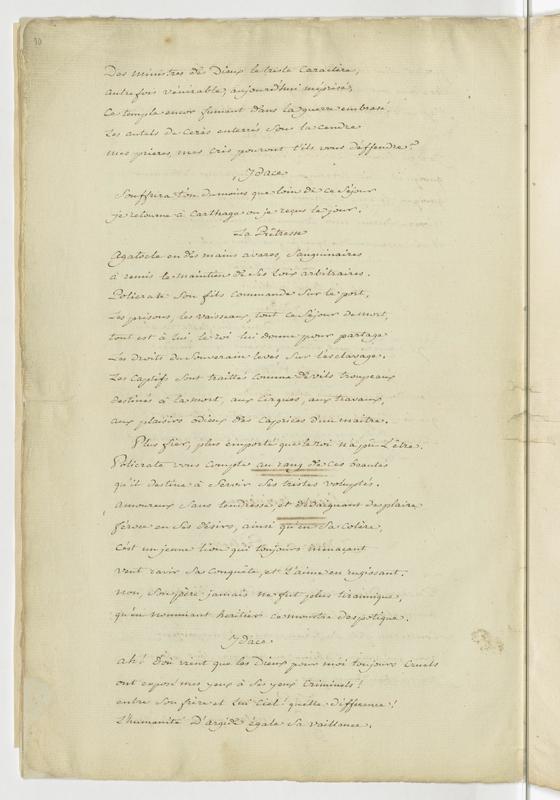 10
Des ministres des Dieux le triste Caractère,
autrefois vénérable, aujourd'hui méprisé;
Ce temple encor fumant dans la guerre embrasé
Les autels de Cerès enterrés sous la cendre
mes prieres, mes cris pouront t'ils vous deffendre?
Ydace
Souffrira t'on dumoins que loin de ce Séjour
je retourne à Carthage ou je reçus le jour.
La Prêtresse
Agatocle en des mains avares, Sanguinaires
à remis le maintien de Ses loix arbitraires.
Policrate Son fils commande Sur le port,
Les prisons, les vaisseaux, tout ce Séjour de mort,
tout est à lui, le roi lui donne pour partage
Les droits du Souverain levés Sur l'esclavage.
Les Captifs Sont traittés comme de vils troupeaux
destinés à la mort, aux Cirques, aux travaux,
aux plaisirs odieux des Caprices d'un maitre.
Plus fier, plus emporté que le roi n'a pu L'être.
Policrate vous compte au rang de ces beautés
qu'il destine à Servir Ses tristes voluptés.
amoureux Sans tendresse, et dédaignant de plaire
féroce en Ses désirs, ainsi qu'en Sa Colère,
c'est un jeune lion qui toujours menaçant
veut ravir Sa Conquête, et L'aime en rugissant.
non, Son père jamais ne fut plus tirannique,
qu'en nommant heritier ce monstre despotique.
Ydace.
ah! d'où vient que les Dieux pour moi toujours Cruels
ont exposé mes yeux à Ses yeux Criminels!
entre Son frere et Lui Ciel! quelle difference!
L'humanité D'argide égale Sa vaillance.